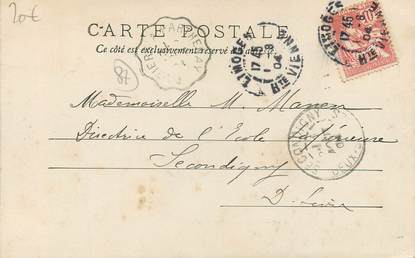 20€
CARTE POSTALE
Ce côté est exclusivement réservé à l'adresse
LIMOGES
17 45
1 - 8
04
Hte VIENNE
LIMOGES
17 45
8
04
Hte VIE
10
87
Mademoiselle M. Manem
Directrice de l'Ecole Supérieure
Secondigny
D. Sèvres
SECONDIGNY
DEUX-S